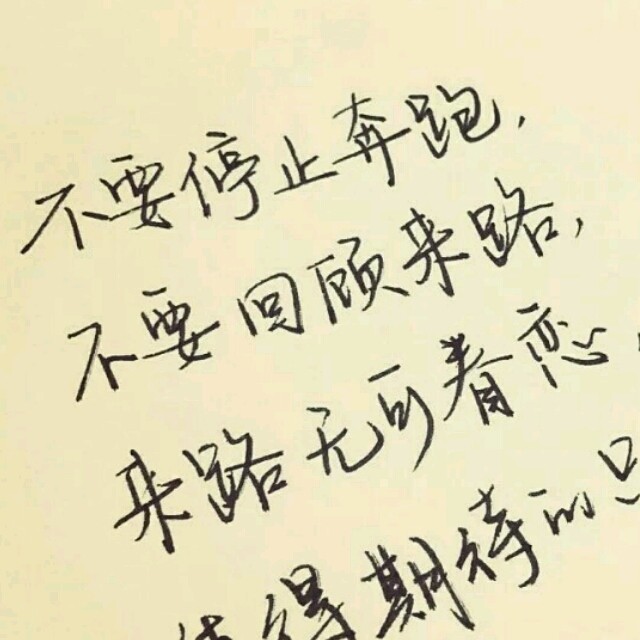 不要停止奔跑,
不要回顾来路,
来路无可眷恋,
得期待的